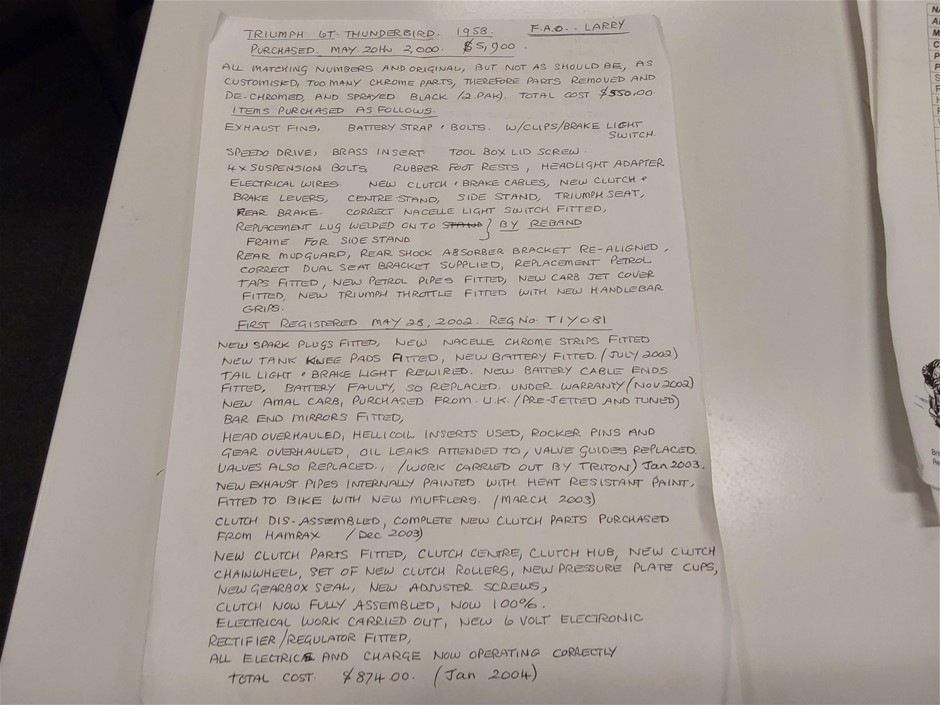 TRIUMPH 6T. THUNDERBIRD. 1958. F.A.O. LARRY
PURCHASED. MAY. 20TH 2,000. $5,900.
ALL MATCHING NUMBERS AND ORIGINAL, BUT NOT AS SHOULD BE, AS
CUSTOMISED, TOO MANY CHROME PARTS, THEREFORE PARTS REMOVED AND
DE-CHROMED, AND SPRAYED BLACK (2 PAK). TOTAL COST $550.00.
ITEMS PURCHASED AS FOLLOWS.
EXHAUST FINS, BATTERY STRAP & BOLTS. W/CLIPS/BRAKE LIGHT
SWITCH.
SPEEDO DRIVE, BRASS INSERT TOOL BOX LID SCREW
4 X SUSPENSION BOLTS RUBBER FOOT RESTS, HEADLIGHT ADAPTER
ELECTRICAL WIRES. NEW CLUTCH & BRAKE CABLES, NEW CLUTCH &
BRAKE LEVERS, CENTRE STAND, SIDE STAND, TRIUMPH SEAT,
REAR BRAKE. CORRECT NACELLE LIGHT SWITCH FITTED,
REPLACEMENT LUG WELDED ON TO STAND } BY REBAND
FRAME FOR SIDE STAND
REAR MUDGUARD, REAR SHOCK ABSORBER BRACKET RE-ALIGNED,
CORRECT DUAL SEAT BRACKET SUPPLIED, REPLACEMENT PETROL
TAPS FITTED, NEW PETROL PIPES FITTED, NEW CARB JET COVER
FITTED, NEW TRIUMPH THROTTLE FITTED WITH NEW HANDLEBAR
GRIPS.
FIRST REGISTERED MAY 28, 2002. REG NO. TIY081
NEW SPARK PLUGS FITTED, NEW NACELLE CHROME STRIPS FITTED
NEW TANK KNEE PADS FITTED, NEW BATTERY FITTED. (JULY 2002)
TAIL LIGHT & BRAKE LIGHT REWIRED. NEW BATTERY CABLE ENDS
FITTED, BATTERY FAULTY, SO REPLACED. UNDER WARRANTY (NOV 2002)
NEW AMAL CARB, PURCHASED FROM U.K. (PRE-JETTED AND TUNED)
BAR END MIRRORS FITTED,
HEAD OVERHAULED, HELLICOIL INSERTS USED, ROCKER PINS AND
GEAR OVERHAULED, OIL LEAKS ATTENDED TO, VALVE GUIDES REPLACED.
VALVES ALSO REPLACED., (WORK CARRIED OUT BY TRITON) Jan 2003.
NEW EXHAUST PIPES INTERNALLY PAINTED WITH HEAT RESISTANT PAINT,
FITTED TO BIKE WITH NEW MUFFLERS. (MARCH 2003)
CLUTCH DIS-ASSEMBLED, COMPLETE NEW CLUTCH PARTS PURCHASED
FROM HAMRAX (Dec 2003)
NEW CLUTCH PARTS FITTED, CLUTCH CENTRE, CLUTCH HUB, NEW CLUTCH
CHAINWHEEL, SET OF NEW CLUTCH ROLLERS, NEW PRESSURE PLATE CUPS,
NEW GEARBOX SEAL, NEW ADJUSTER SCREWS,
CLUTCH NOW FULLY ASSEMBLED, NOW 100%.
ELECTRICAL WORK CARRIED OUT, NEW 6 VOLT ELECTRONIC
RECTIFIER/REGULATOR FITTED,
ALL ELECTRICS AND CHARGE NOW OPERATING CORRECTLY
TOTAL COST. $874.00. (Jan 2004)